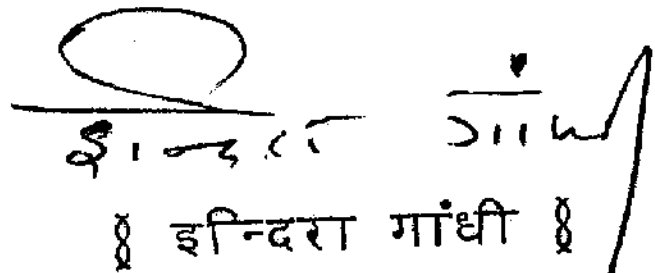 इन्दिरा गांधी
॥ इन्दिरा गांधी ॥